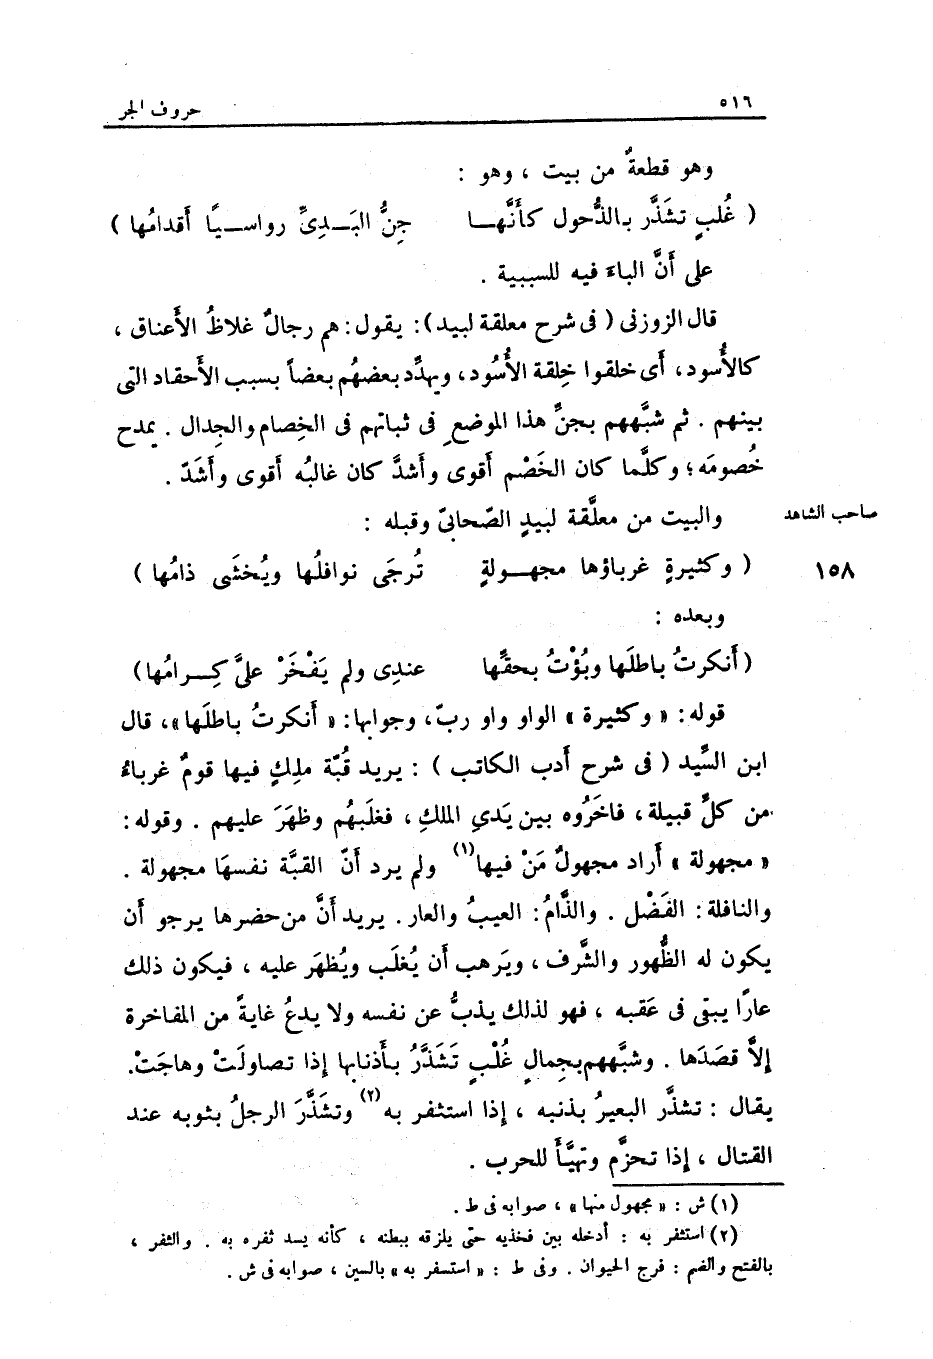 ٥١٦ حروف الجر
وهو قطعةٌ من بيت ، وهو :
( غُلبٍ تشذَّر بالذُّحول كأنَّهـا جِنُّ البَـدِىِّ رواسـيًا أَقدامُها )
على أنَّ الباءَ فيه للسببية .
قال الزوزنى ( فى شرح معلقة لبيد ) : يقول : هم رجالٌ غلاظُ الأَعناق ،
كالأُسود ، أَى خلقوا خِلقة الأُسُود ، ويهدِّد بعضهُم بعضاً بسبب الأَحقاد التى
بينهم . ثم شبَّههم بجنِّ هذا الموضعِ فى ثباتهم فى الخِصام والجِدال . يمدح
خُصومَه ؛ وكلَّما كان الخَصْم أَقوى وأَشدَّ كان غالبُه أَقوى وأَشَدّ .
والبيت من معلَّقة لبيدٍ الصّحابىّ وقبله : صاحب الشاهد
( وكثيرةٍ غرباؤها مجهـولةٍ تُرجَى نوافلُها ويُخشَى ذامُها ) ١٥٨
وبعده :
( أَنكرتُ باطلَها وبُؤْتُ بحقِّها عندِى ولم يَفْخَرْ علىَّ كِـرامُها )
قوله : « وكثيرة » الواو واو ربّ ، وجوابها : « أَنكرتُ باطلَها » ، قال
ابن السِّيد ( فى شرح أدب الكاتب ) : يريد قُبّة ملِكٍ فيها قومٌ غرباءُ
من كلِّ قبيلة ، فاخَرُوه بين يَدىِ الملكِ ، فغلَبهُم وظهَرَ عليهم . وقوله :
« مجهولة » أَراد مجهولٌ مَنْ فيها (١) ولم يرد أنّ القبَّة نفسهَا مجهولة .
والنافلة : الفَضْل . والذَّامُ : العيبُ والعار . يريد أَنَّ من حضرها يرجو أَن
يكون له الظُّهور والشَّرف ، ويَرهب أَن يُغلَب ويُظهَر عليه ، فيكون ذلك
عارًا يبقى فى عَقبه ، فهو لذلك يذبُّ عن نفسه ولا يدعُ غايةً من المفاخرة
إلاَّ قصَدَها . وشبَّههم بجِمالٍ غُلْبٍ تَشَذَّرُ بأَذنابها إذا تصاولَتْ وهاجَتْ .
يقال : تشذَّر البعيرُ بذنبه ، إذا استثفر به (٢) وتشَذَّرَ الرجلُ بثوبه عند
القتال ، إذا تحزَّم وتهيَّأَ للحرب .
(١) ش : « مجهول منها » ، صوابه فى ط .
(٢) استثفر به : أدخله بين فخذيه حتى يلزقه ببطنه ، كأنه يسد ثفره به . والثفر ،
بالفتح والضم : فرج الحيوان . وفى ط : « استسفر به » بالسين ، صوابه فى ش .